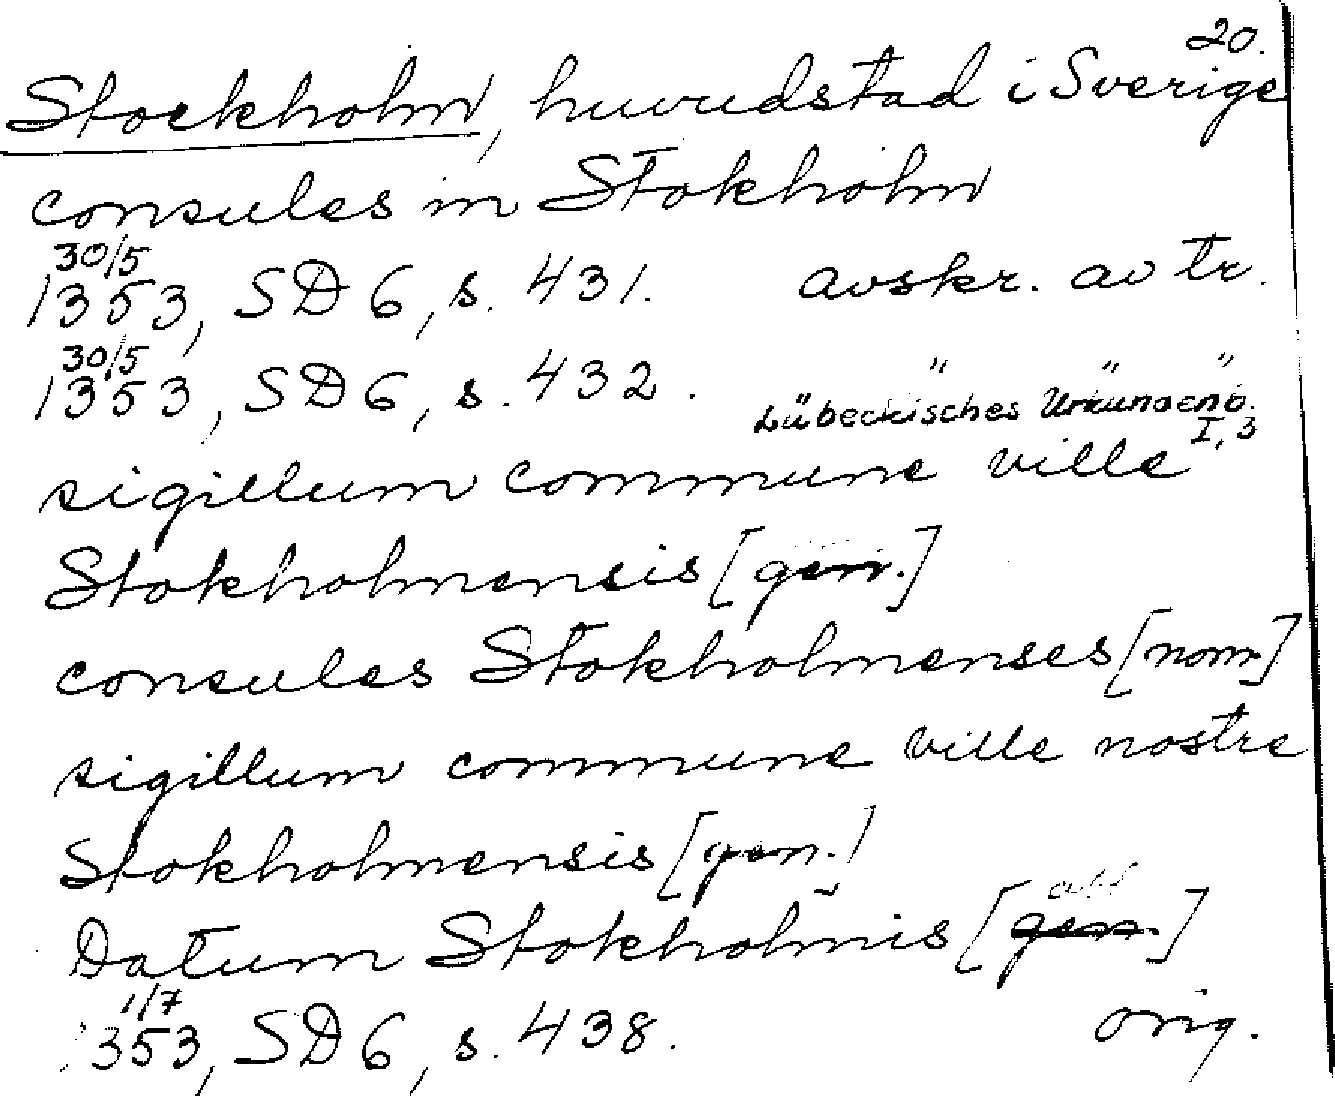 20.
Stockholm, huvudstad i Sverige
consules in Stokholm
30/5
1353, SD 6, s. 431. avskr. av tr.
30/5
1353, SD 6, s. 432. " " "
Lübeckisches Urkundenb.
I, 3
sigillum commune ville
Stokholmensis [gen.]
consules Stokholmenses [nom.]
sigillum commune ville nostre
Stokholmensis [gen.]
abl
Datum Stokholmis [gen.]
1/7
1353, SD 6, s. 438. orig.